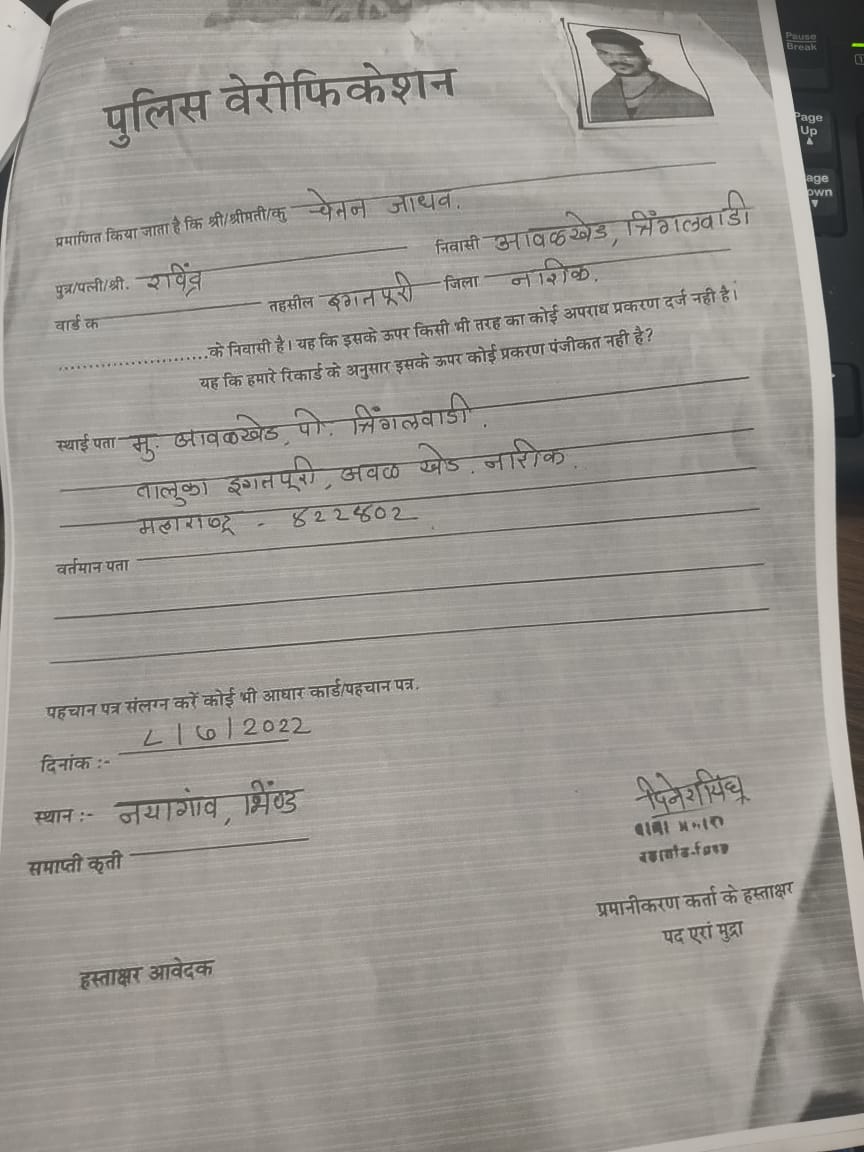 Pause
Break
Page
Up
पुलिस वेरीफिकेशन
प्रमाणित किया जाता है कि श्री/श्रीमती/कु चेतन जाधव.
पुत्र/पत्नी/श्री. राविंद्र निवासी आवळखेड, त्रिंगलवाडी
वार्ड क तहसील इगतपूरी जिला नाशिक.
के निवासी है। यह कि इसके ऊपर किसी भी तरह का कोई अपराध प्रकरण दर्ज नही है।
यह कि हमारे रिकार्ड के अनुसार इसके ऊपर कोई प्रकरण पंजीकत नही है?
स्थाई पता मु. आवळखेड, पो. त्रिंगलवाडी.
तालुका इगतपूरी, अवळ खेड. नाशिक.
वर्तमान पता
पहचान पत्र संलग्न करें कोई भी आधार कार्ड/पहचान पत्र.
दिनांक :- /2022
स्थान :- नयागांव, भिंण्ड
समाप्ती कृती
प्रमानीकरण कर्ता के हस्ताक्षर
पद एरां मुद्रा
हस्ताक्षर आवेदक